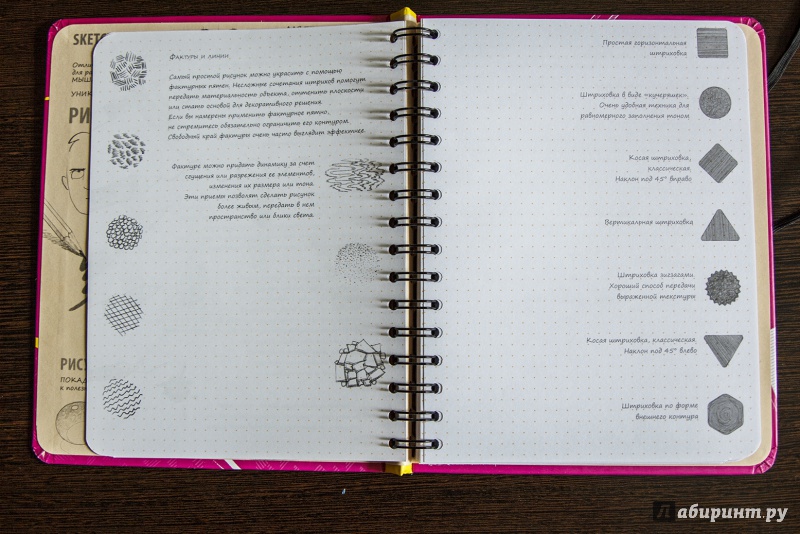 SKET
Отли
для ра
МЫШ
УНИК
РИ
РИСУ
ПОКАД
к полез
Фактуры и линии
Самый простой рисунок можно украсить с помощью
фактурных пятен. Несложные сочетания штрихов помогут
передать материальность объекта, оттенить плоскость
или стать основой для декоративного решения.
Если вы намерены применить фактурное пятно,
не стремитесь обязательно ограничить его контуром.
Свободный край фактуры очень часто выглядит эффектнее.
Фактуре можно придать динамику за счет
сгущения или разрежения ее элементов,
изменения их размера или тона.
Эти приемы позволят сделать рисунок
более живым, передать в нем
пространство или блики света.
Простая горизонтальная
штриховка
Штриховка в виде «кучеряшек».
Очень удобная техника для
равномерного заполнения тоном
Косая штриховка,
классическая.
Наклон под 45° вправо
Вертикальная штриховка
Штриховка зигзагами.
Хороший способ передачи
выраженной текстуры
Косая штриховка, классическая.
Наклон под 45° влево
Штриховка по форме
внешнего контура
Лабиринт.ру